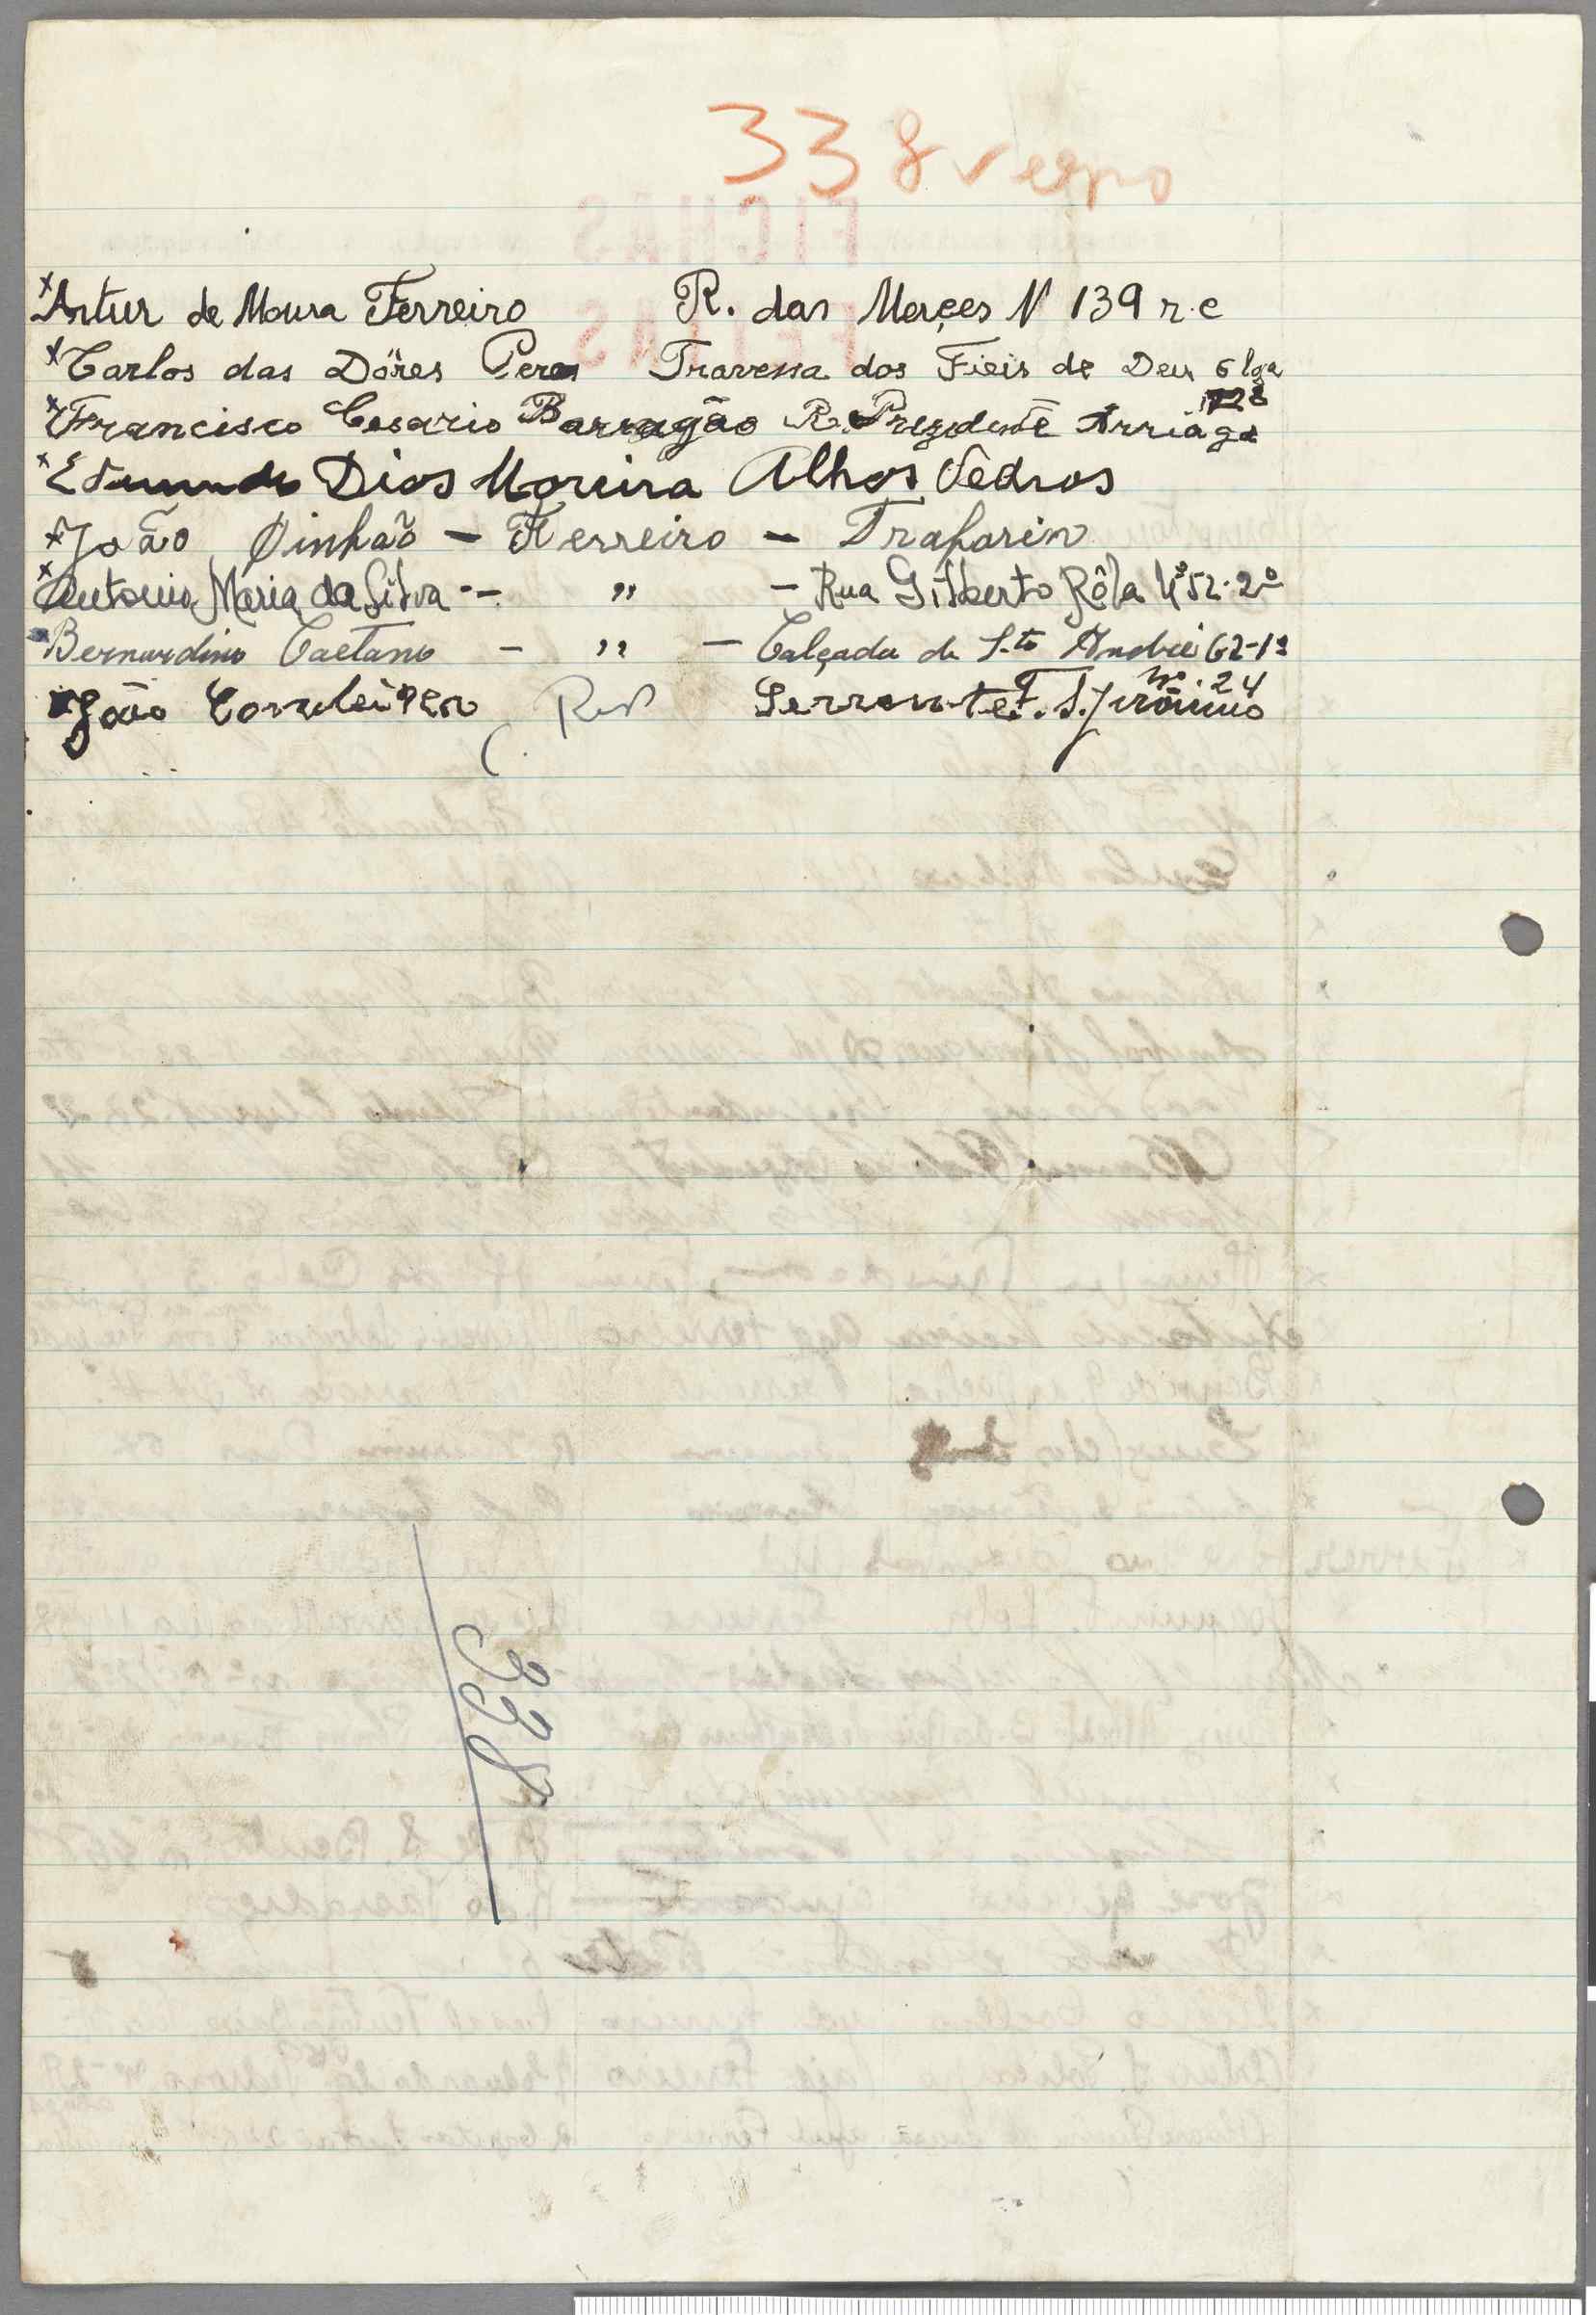 338 verso
Artur de Moura Ferreiro R. das Merçes Nº 139 r.c
Carlos das Dôres Peres Travessa dos Fieis de Deus 6 lga
Francisco Cesario Barragão R. Prezidente Arriaga 128
Edmundo Dias Moreira Alhos Vedros
João Pinhão - Ferreiro - Trafaria
Antonio Maria da Silva - " - Rua Gilberto Rôla Nº 52-2º
Bernardino Caetano - " - Calçada de S.to André 62-1º
João Serrente T. S. Jerónimo Nº. 24
338